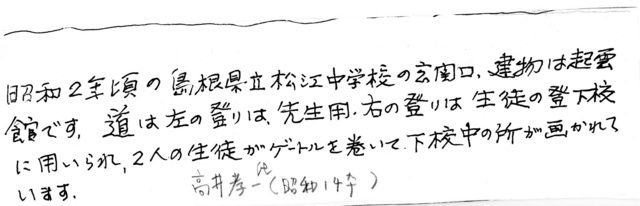 昭和2年頃の島根県立松江中学校の玄関口、建物は起雲
館です。道は左の登りは、先生用、右の登りは生徒の登下校
に用いられ、2人の生徒がゲートルを巻いて下校中の所が画かれて
います。
高井孝一 (昭和14卒)